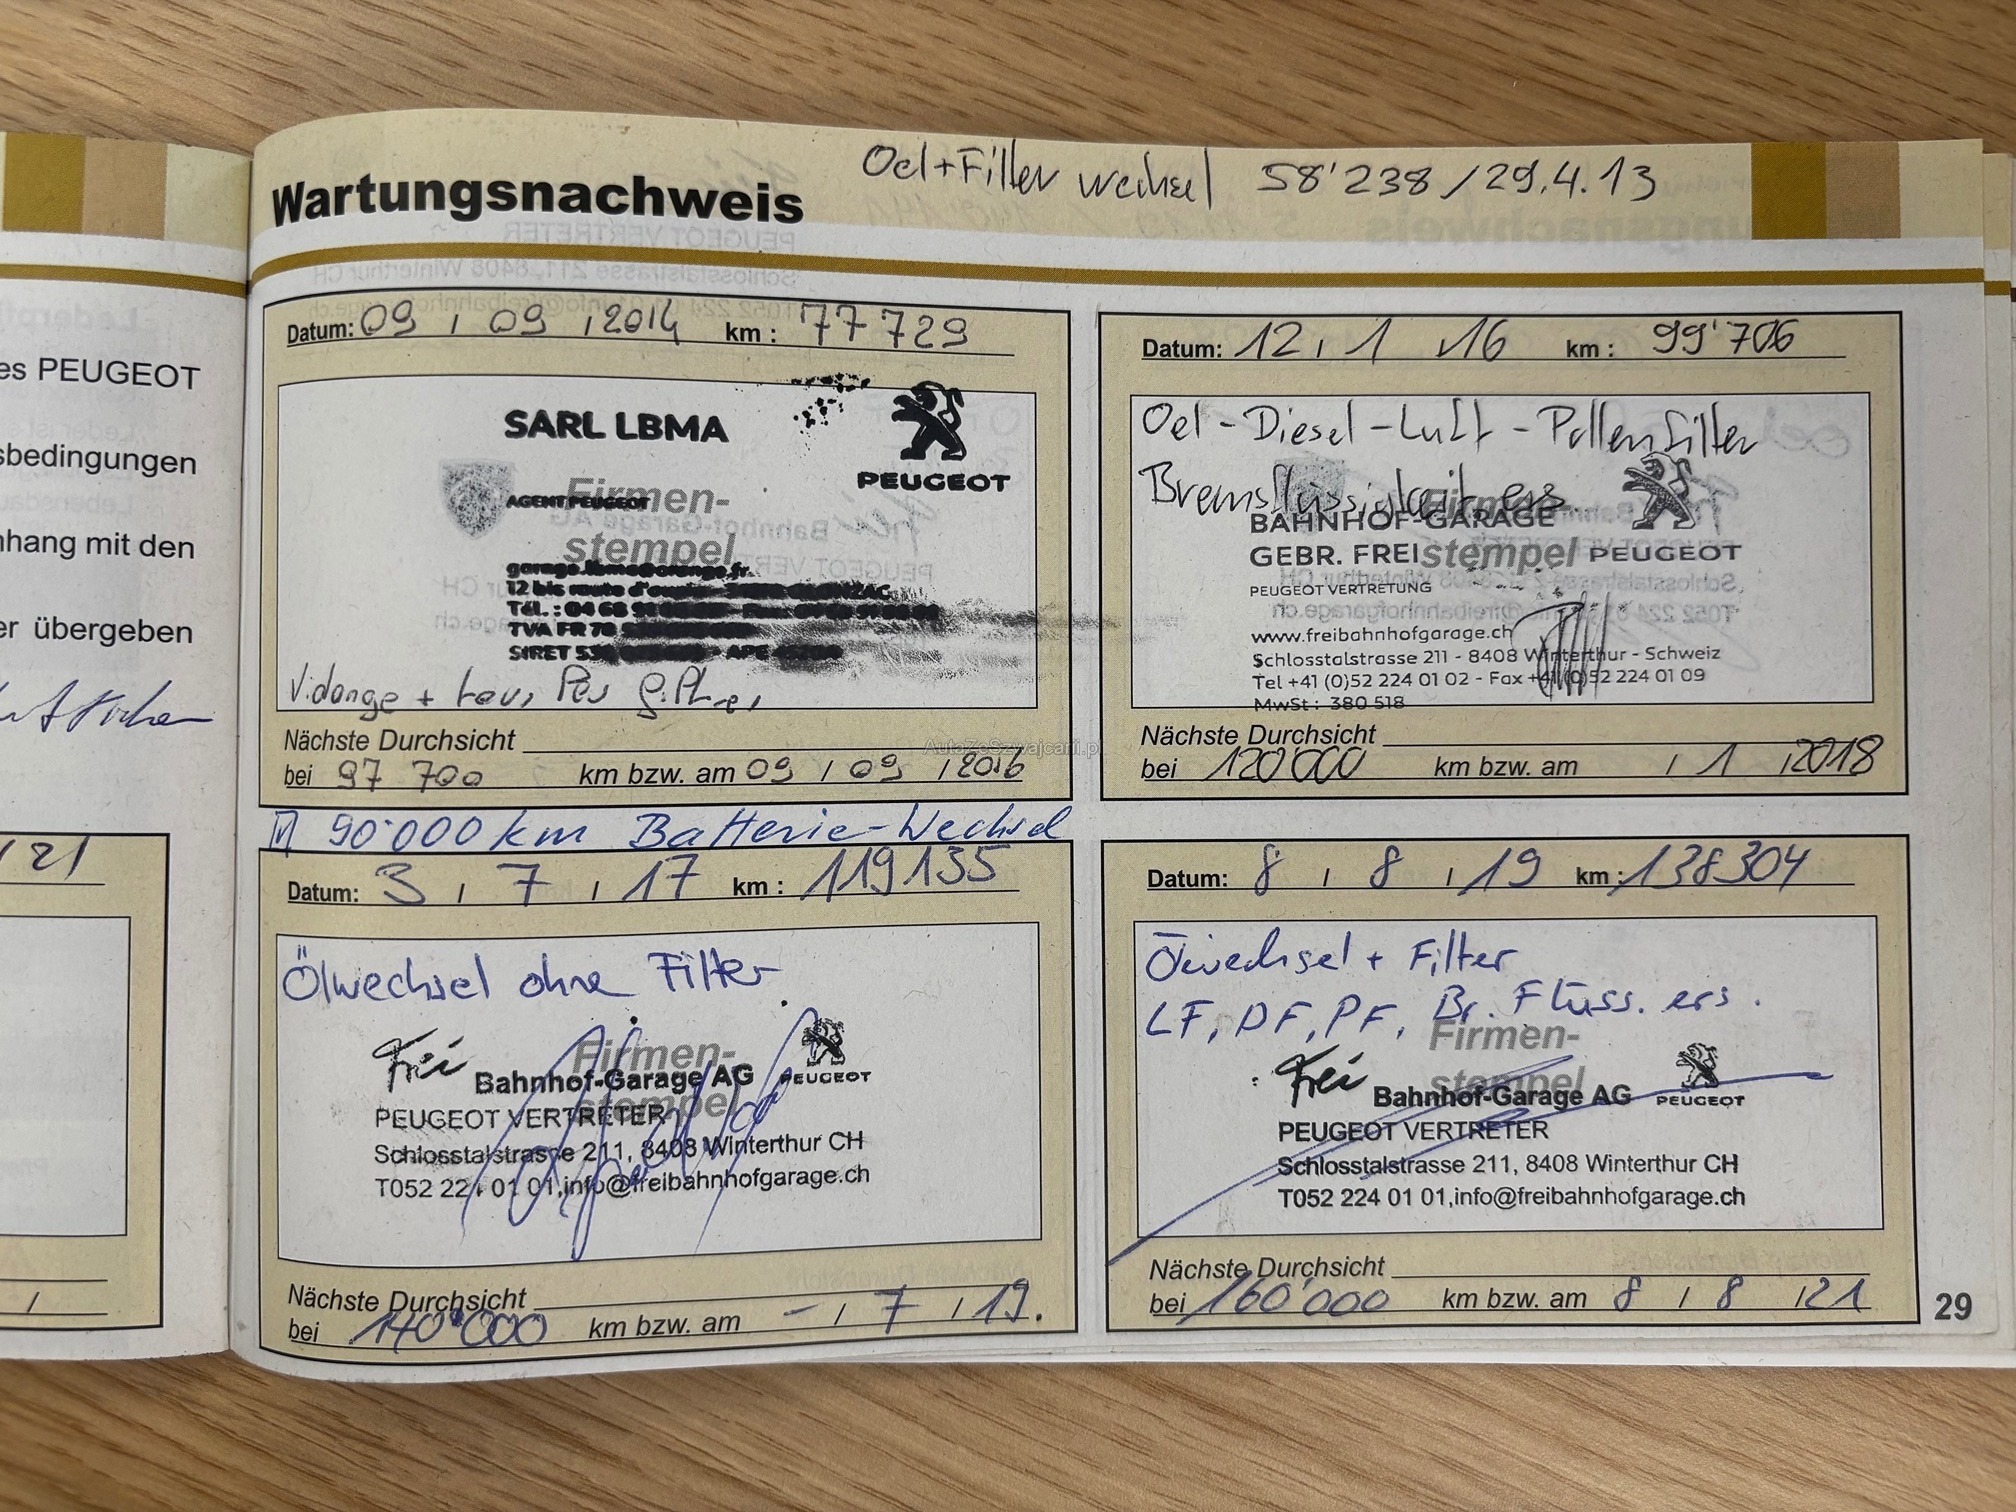 es PEUGEOT
sbedingungen
nhang mit den
er übergeben
121
/
Wartungsnachweis
Oel+Filter wechsel 58'238 / 29.4.13
Datum: 09 / 09 / 2014 km : 77 729
SARL LBMA
PEUGEOT
AGENT PEUGEOT
Firmen-
stempel
garage.lbma@orange.fr
12 bis route d'
Tél. : 04 68
TVA FR 78
SIRET 53 APE
Vidange +
Nächste Durchsicht
bei 97 700 km bzw. am 09 / 09 / 2016
Datum: 12 / 1 / 16 km : 99'706
Oel - Diesel - Luft - Pollenfilter
Bremsflüssigkeit ers.
Firmen-
BAHNHOF-GARAGE
GEBR. FREI stempel PEUGEOT
PEUGEOT VERTRETUNG
www.freibahnhofgarage.ch
Schlosstalstrasse 211 - 8408 Winterthur - Schweiz
Tel +41 (0)52 224 01 02 - Fax +41 (0)52 224 01 09
MwSt : 380 518
Nächste Durchsicht
bei 120'000 km bzw. am / 1 / 2018
AutaZeSzwajcarii.pl
90'000 km Batterie-Wechsel
Datum: 3 / 7 / 17 km : 119135
Ölwechsel ohne Filter
Firmen-
stempel
Frei Bahnhof-Garage AG PEUGEOT
PEUGEOT VERTRETER
Schlosstalstrasse 211, 8408 Winterthur CH
T052 224 01 01,info@freibahnhofgarage.ch
Nächste Durchsicht
bei 140'000 km bzw. am - / 7 / 19.
Datum: 8 / 8 / 19 km : 138304
Ölwechsel + Filter
LF, DF, PF, Br. Flüss. ers.
Firmen-
stempel
Frei Bahnhof-Garage AG PEUGEOT
PEUGEOT VERTRETER
Schlosstalstrasse 211, 8408 Winterthur CH
T052 224 01 01,info@freibahnhofgarage.ch
Nächste Durchsicht
bei 160'000 km bzw. am 8 / 8 / 21
29